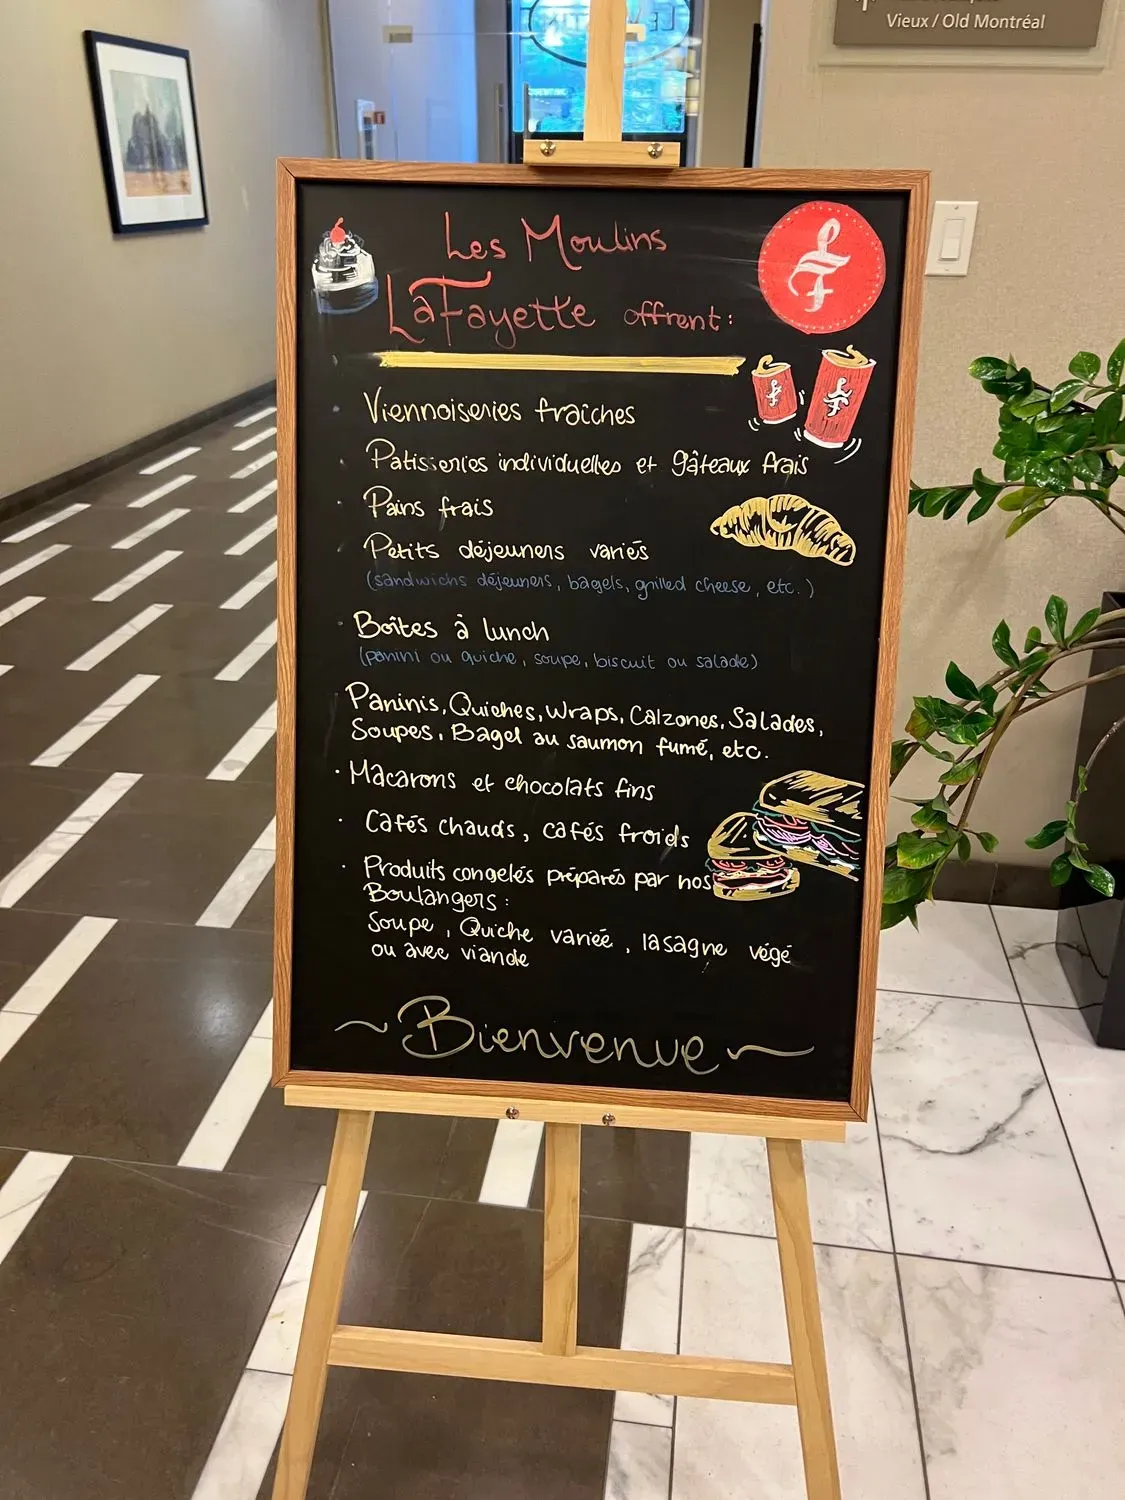 Vieux / Old Montréal
Les Moulins
LaFayette offrent:
LF
LF
LF
Viennoiseries fraîches
Patisseries individuelles et gâteaux frais
· Pains frais
· Petits déjeuners variés
(sandwichs déjeuners, bagels, grilled cheese, etc.)
· Boîtes à lunch
(panini ou quiche, soupe, biscuit ou salade)
Paninis, Quiches, Wraps, Calzones, Salades,
Soupes, Bagel au saumon fumé, etc.
· Macarons et chocolats fins
· Cafés chauds, cafés froids
· Produits congelés préparés par nos
Boulangers:
Soupe, Quiche variée, lasagne végé
ou avec viande
~ Bienvenue ~